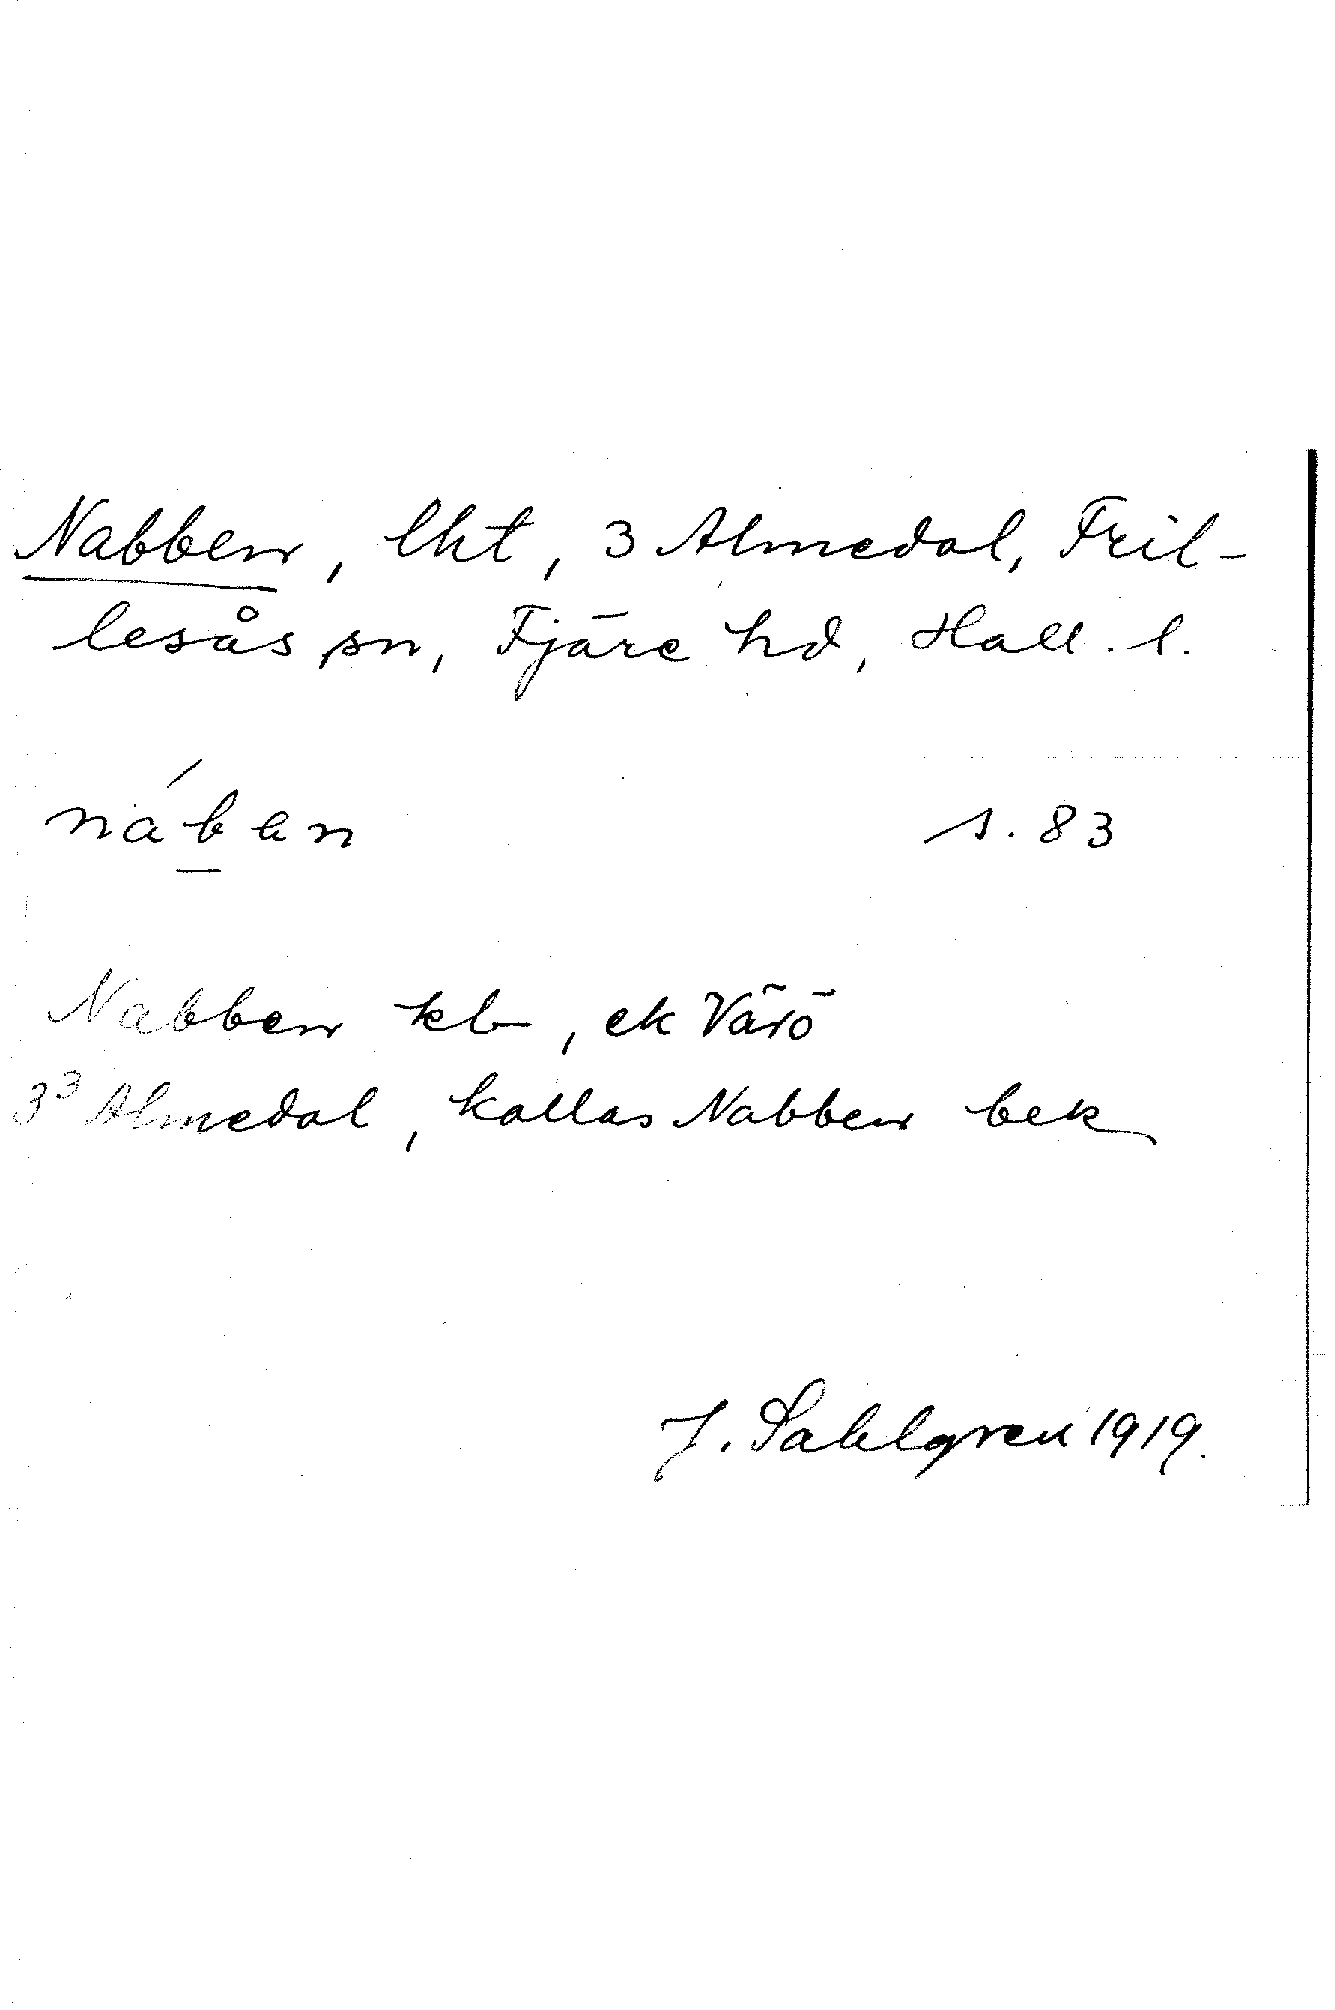 Nabben, lht, 3 Almedal, Fril-
lesås sn, Fjäre hd, Hall. l.
nában s. 83
Nabben kb, ek Värö
3³ Almedal, kallas Nabben bek
J. Sahlgren 1919.